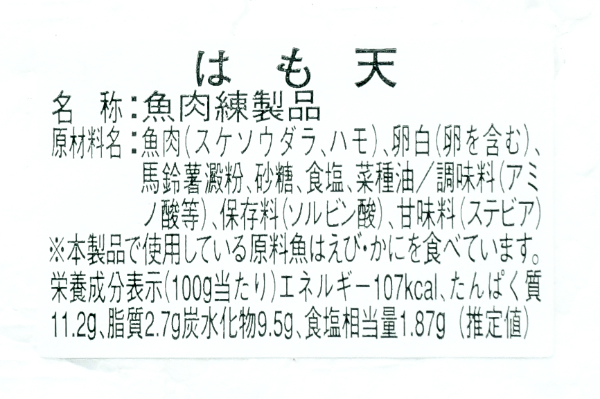 はも天
名 称:魚肉練製品
原材料名:魚肉(スケソウダラ、ハモ)、卵白(卵を含む)、
馬鈴薯澱粉、砂糖、食塩、菜種油/調味料(アミ
ノ酸等)、保存料(ソルビン酸)、甘味料(ステビア)
※本製品で使用している原料魚はえび・かにを食べています。
栄養成分表示(100g当たり)エネルギー107kcal、たんぱく質
11.2g、脂質2.7g炭水化物9.5g、食塩相当量1.87g (推定値)